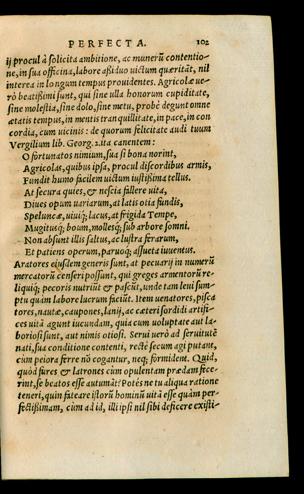 PERFECTA. 102
ij procul à solicita ambitione, ac munerū contentio-
ne, in sua officina, labore aßiduo uictum quæritāt, nil
interea in longum tempus prouidentes. Agricolæ ue-
rò beatißimi sunt, qui sine ulla honorum cupiditate,
sine molestia, sine dolo, sine metu, probè degunt omne
ætatis tempus, in mentis tranquillitate, in pace, in con
cordia, cum uicinis: de quorum felicitate audi tuum
Vergilium lib. Georg. 2. ita canentem:
O fortunatos nimium, sua si bona norint,
Agricolas, quibus ipsa, procul discordibus armis,
Fundit humo facilem uictum iustißima tellus.
At secura quies, & nescia fallere uita,
Diues opum uariarum, at latis otia fundis,
Speluncæ, uiuiq; lacus, at frigida Tempe,
Mugitusq; boum, mollesq; sub arbore somni.
Non absunt illis saltus, ac lustra ferarum,
Et patiens operum, paruoq; assueta iuuentus.
Aratores eiusdem generis sunt, at pecuarij in numerū
mercatorū censeri possunt, qui greges armentorū re-
liquiq; pecoris nutriūt & pascūt, unde tam leui sum-
ptu quàm labore lucrum faciūt. Item uenatores, pisca
tores, nautæ, caupones, lanij, ac cæteri sordidi artifi-
ces uitā agunt iucundam, quia cum uoluptate aut la-
boriosi sunt, aut nimis otiosi. Serui uerò ad seruitutē
nati, sua conditione contenti, rectè secum agi putant,
cùm peiora ferre nō cogantur, neq; formident. Quid,
quòd fures & latrones cùm opulentam prædam fece-
rint, se beatos esse autumāt? Potés ne tu aliqua ratione
teneri, quin fateare istorū hominū uitā esse quàm per-
fectißimam, cùm ad id, illi ipsi nil sibi deficere existi-